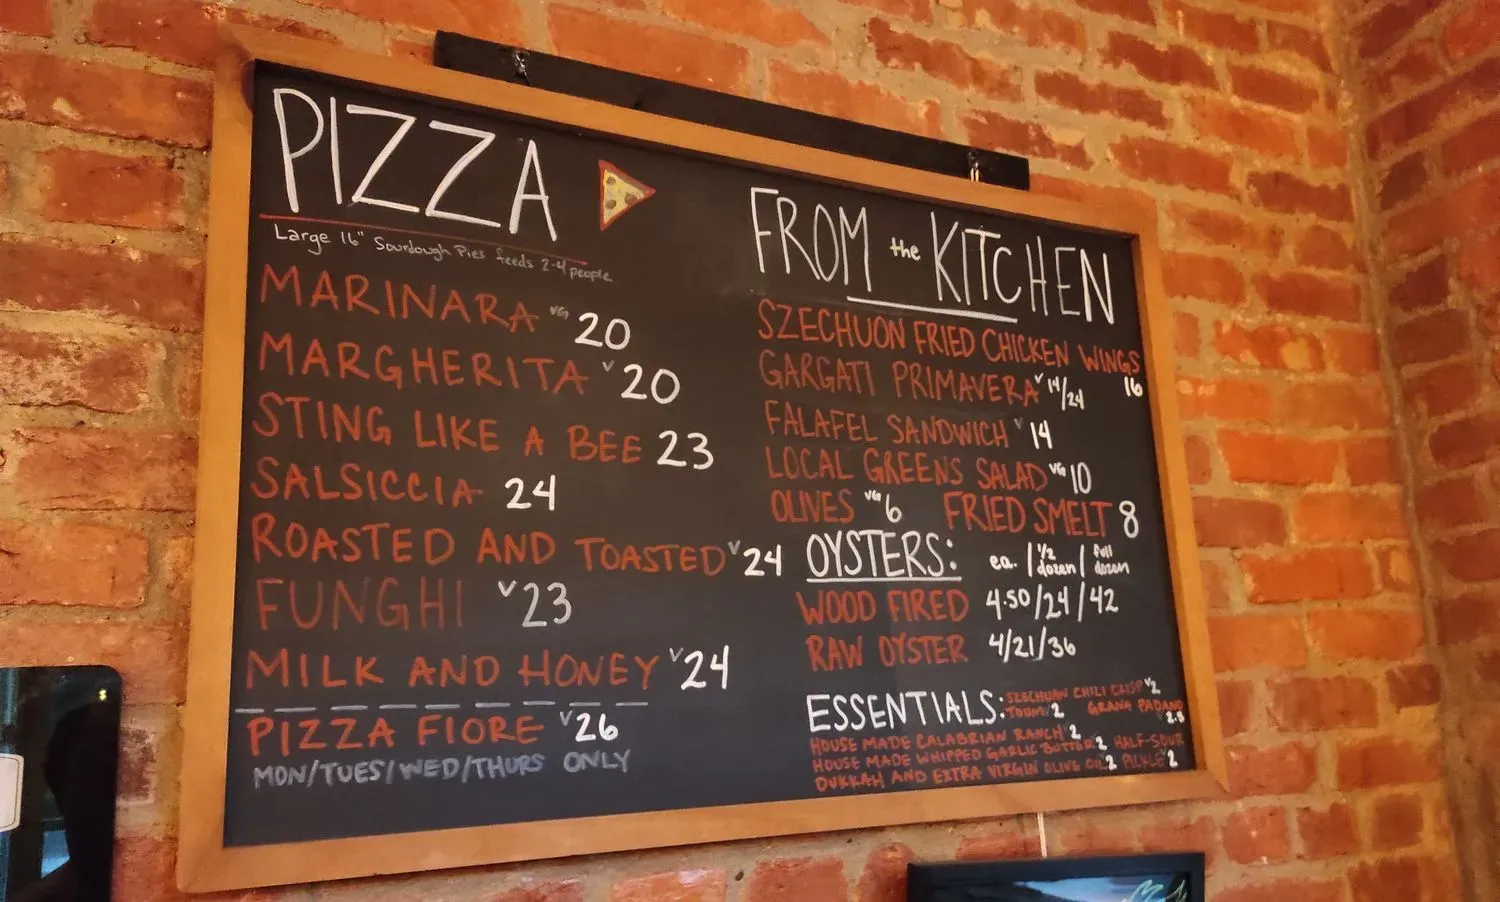 PIZZA
Large 16" Sourdough Pies feeds 2-4 people
MARINARA VG 20
MARGHERITA V 20
STING LIKE A BEE 23
SALSICCIA 24
ROASTED AND TOASTED V 24
FUNGHI V 23
MILK AND HONEY V 24
PIZZA FIORE V 26
MON/TUES/WED/THURS ONLY
FROM the KITCHEN
SZECHUON FRIED CHICKEN WINGS
16
GARGATI PRIMAVERA V 14/24
FALAFEL SANDWICH V 14
LOCAL GREENS SALAD VG 10
OLIVES VG 6 FRIED SMELT 8
OYSTERS: ea. / 1/2 dozen / full dozen
WOOD FIRED 4.50/24/42
RAW OYSTER 4/21/36
ESSENTIALS: SZECHUAN CHILI CRISP V 2
TOUM V 2 GRANA PADANO
2.5
HOUSE MADE CALABRIAN RANCH 2
HOUSE MADE WHIPPED GARLIC BUTTER 2 HALF-SOUR
DUKKAH AND EXTRA VIRGIN OLIVE OIL 2 PICKLE 2